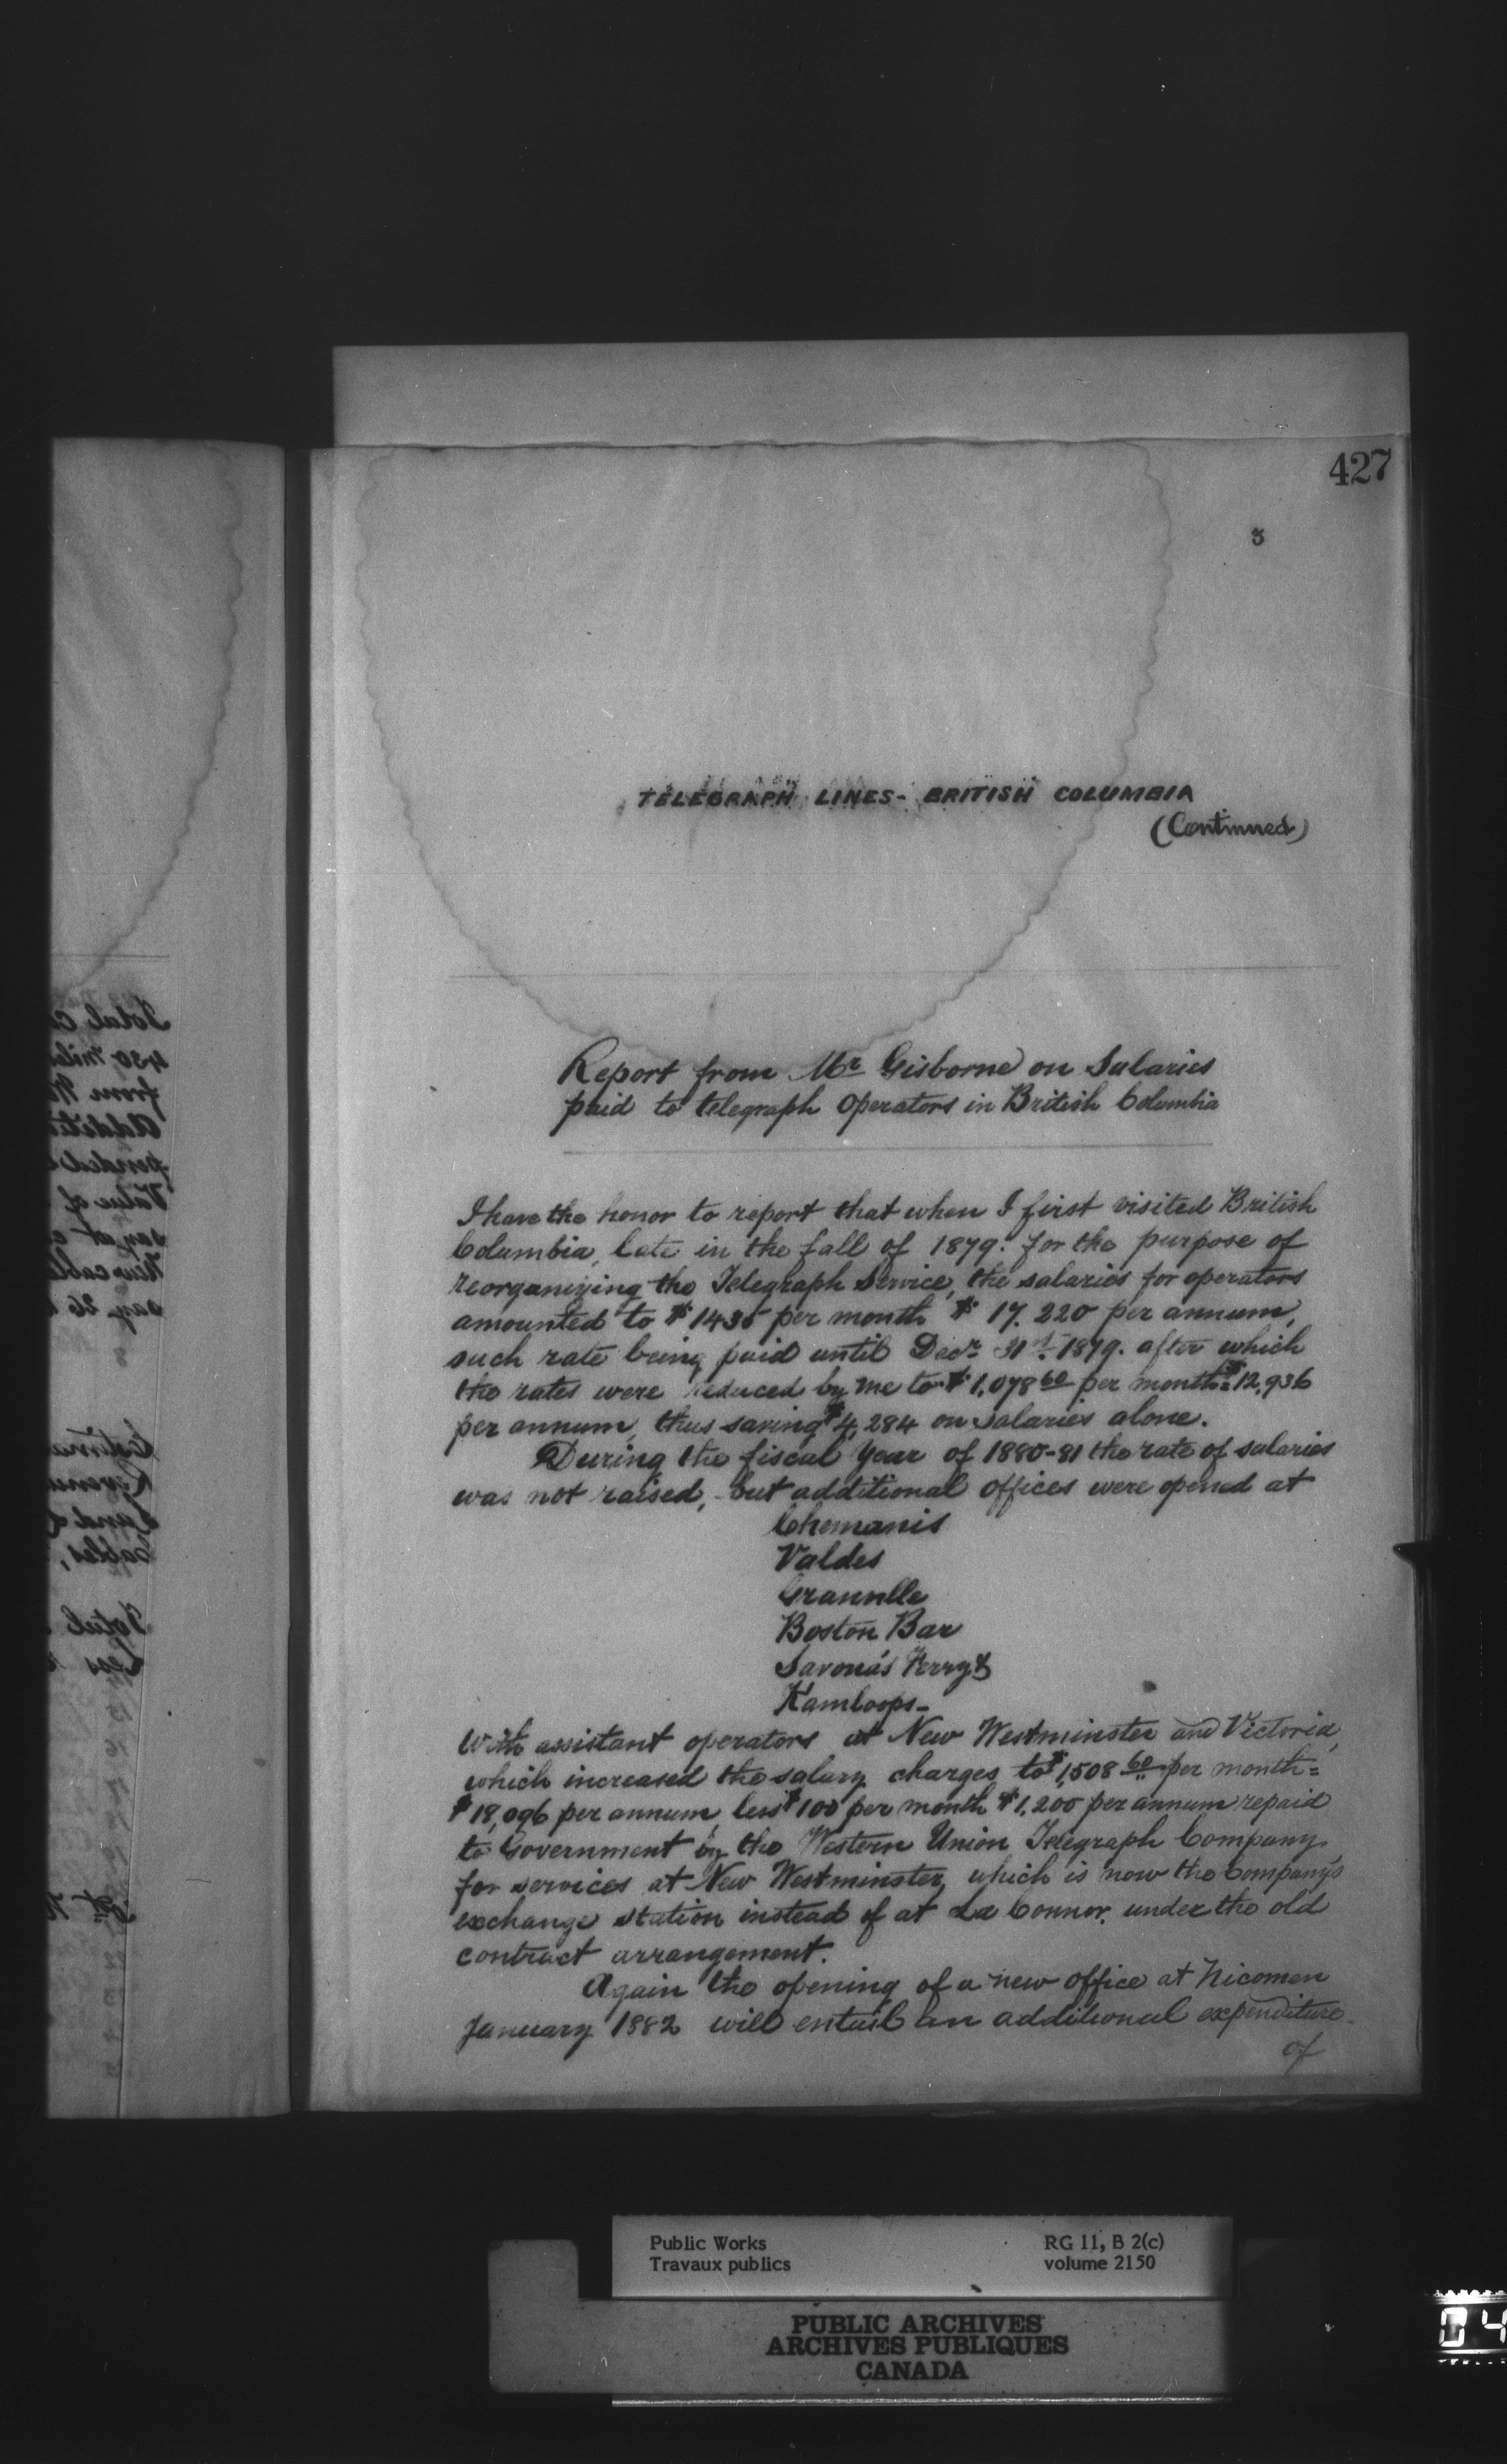 427
3
TELEGRAPH LINES - BRITISH COLUMBIA
(Continued)
Report from Mr Gisborne on Salaries
paid to telegraph Operators in British Columbia
I have the honor to report that when I first visited British
Columbia, late in the fall of 1879. for the purpose of
reorganizing the Telegraph Service, the salaries for operators
amounted to $1435 per month $17.220 per annum,
such rate being paid until Decr 31st 1879. after which
the rates were reduced by me to $1,078 60 per month = $12,936
per annum, thus saving $4,284 on salaries alone.
During the fiscal Year of 1880-81 the rate of salaries
was not raised, - but additional offices were opened at
Chemanis
Valdes
Granville
Boston Bar
Savona's Ferry &
Kamloops -
With assistant operators at New Westminster and Victoria,
which increased the salary charges to $1,508 60 per month =
$18,096 per annum, less $100 per month $1,200 per annum repaid
to Government by the Western Union Telegraph Company
for services at New Westminster, which is now the Company's
exchange station instead of at La Connor. under the old
contract arrangement.
Again the opening of a new office at Nicomen
January 1882 will entail an additional expenditure
of
Public Works
Travaux publics
RG 11, B 2(c)
volume 2150
PUBLIC ARCHIVES
ARCHIVES PUBLIQUES
CANADA
04